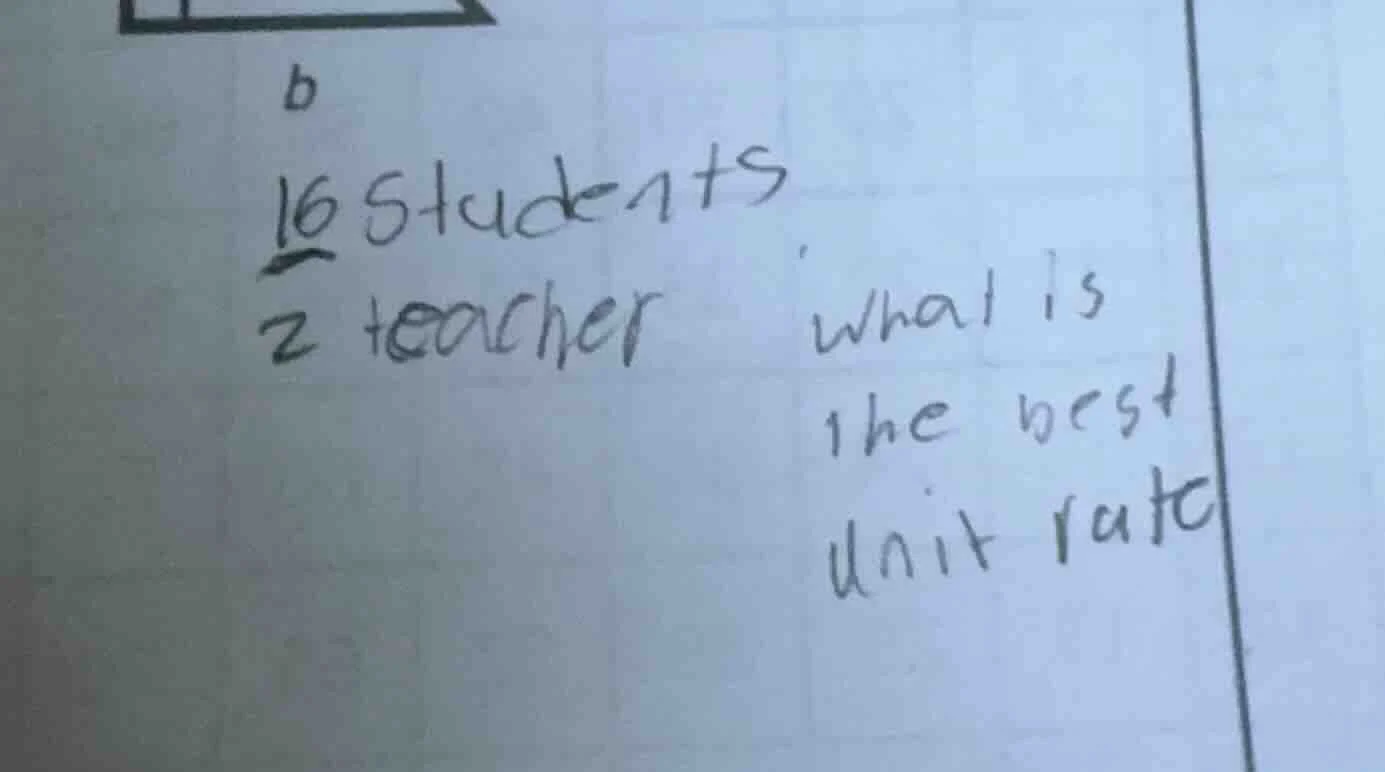 b
16 Students
2 teacher
what is
the best
unit rate